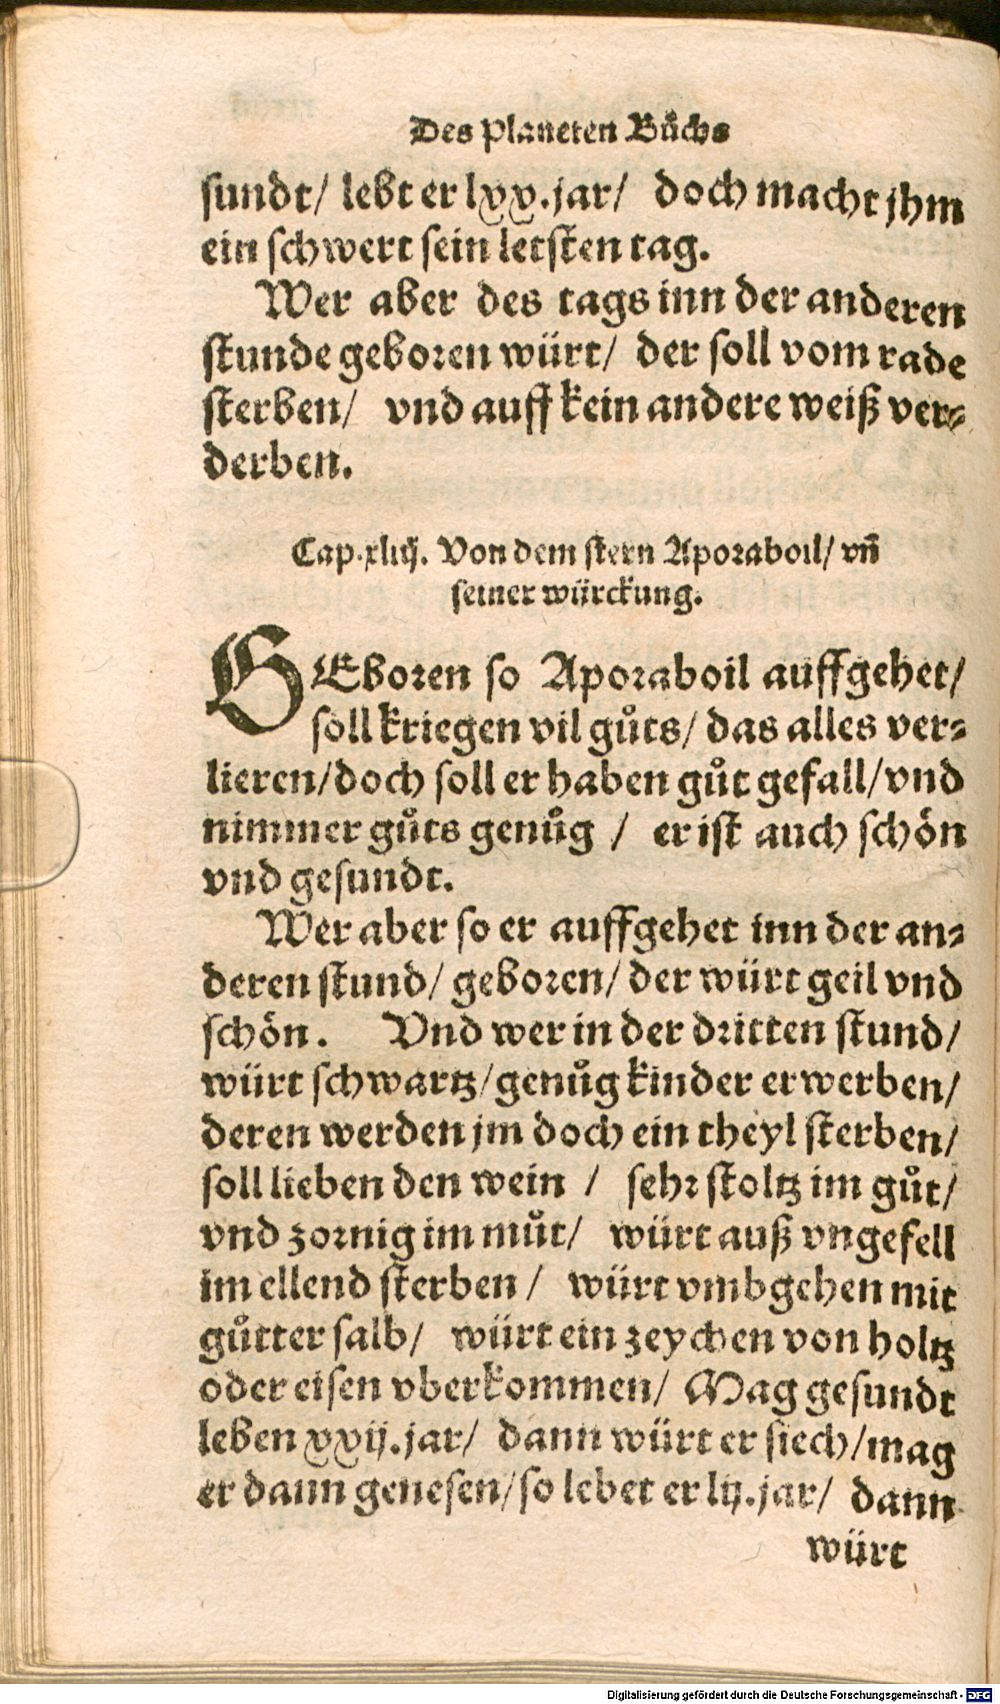 Des Planeten Bůchs
sundt/ lebt er lxx.jar/ doch macht jhm
ein schwert sein letsten tag.
Wer aber des tags inn der anderen
stunde geboren würt/ der soll vom rade
sterben/ vnd auff kein andere weiß ver-
derben.
Cap.xliij. Von dem stern Aporaboil/ vñ
seiner würckung.
GEboren so Aporaboil auffgehet/
soll kriegen vil gůts/ das alles ver-
lieren/doch soll er haben gůt gefall/vnd
nimmer gůts genůg / er ist auch schön
vnd gesundt.
Wer aber so er auffgehet inn der an-
deren stund/ geboren/ der würt geil vnd
schön. Vnd wer in der dritten stund/
würt schwartz/genůg kinder erwerben/
deren werden jm doch ein theyl sterben/
soll lieben den wein / sehr stoltz im gůt/
vnd zornig im můt/ würt auß vngefell
im ellend sterben / würt vmbgehen mit
gůtter salb/ würt ein zeychen von holtz
oder eisen vberkommen/ Mag gesundt
leben xxij.jar/ dann würt er siech/mag
er dann genesen/so lebet er lij.jar/ dann
würt
Digitalisierung gefördert durch die Deutsche Forschungsgemeinschaft - DFG